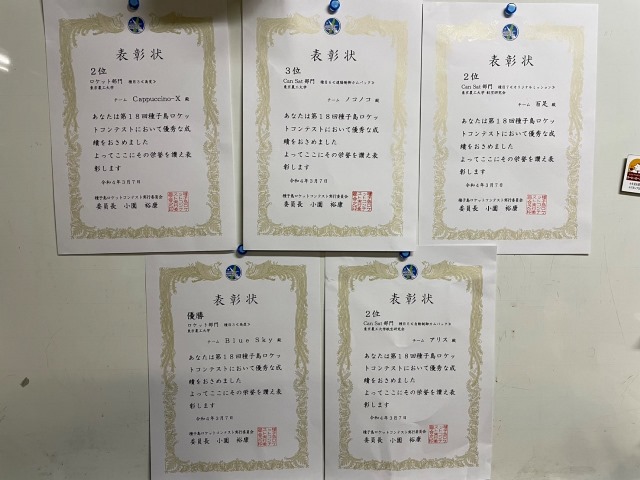 表彰状
2位
ロケット部門
東京農工大学
チーム Cappuccino-X 殿
あなたは第18回種子島ロケ
ットコンテストにおいて優秀な成
績をおさめました
よってここにその栄誉を讃え表
彰します
令和4年3月7日
種子島ロケットコンテスト実行委員会
委員長 小園 裕康
表彰状
3位
Can Sat 部門
東京農工大学
チーム ノコノコ 殿
あなたは第18回種子島ロケ
ットコンテストにおいて優秀な成
績をおさめました
よってここにその栄誉を讃え表
彰します
令和4年3月7日
種子島ロケットコンテスト実行委員会
委員長 小園 裕康
表彰状
2位
Can Sat 部門
東京農工大学 航空研究会
チーム 百足 殿
あなたは第18回種子島ロケ
ットコンテストにおいて優秀な成
績をおさめました
よってここにその栄誉を讃え表
彰します
令和4年3月7日
種子島ロケットコンテスト実行委員会
委員長 小園 裕康
表彰状
優勝
ロケット部門
東京農工大学
チーム Blue Sky 殿
あなたは第18回種子島ロケ
ットコンテストにおいて優秀な成
績をおさめました
よってここにその栄誉を讃え表
彰します
令和4年3月7日
種子島ロケットコンテスト実行委員会
委員長 小園 裕康
表彰状
2位
Can Sat 部門
東京農工大学航空研究会
チーム アリス 殿
あなたは第18回種子島ロケ
ットコンテストにおいて優秀な成
績をおさめました
よってここにその栄誉を讃え表
彰します
令和4年3月7日
種子島ロケットコンテスト実行委員会
委員長 小園 裕康